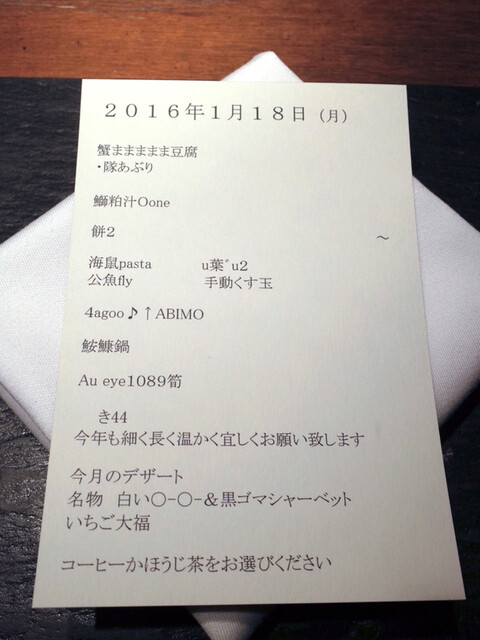 ２０１６年１月１８日（月）
蟹ままままま豆腐
・隊あぶり
鰤粕汁Oone
餅２
～
海鼠pasta　u葉゛u２
公魚fly　手動くす玉
４agoo♪↑ABIMO
鮟鱇鍋
Au eye１０８９筍
き44
今年も細く長く温かく宜しくお願い致します
今月のデザート
名物　白い○−○−＆黒ゴマシャーベット
いちご大福
コーヒーかほうじ茶をお選びください